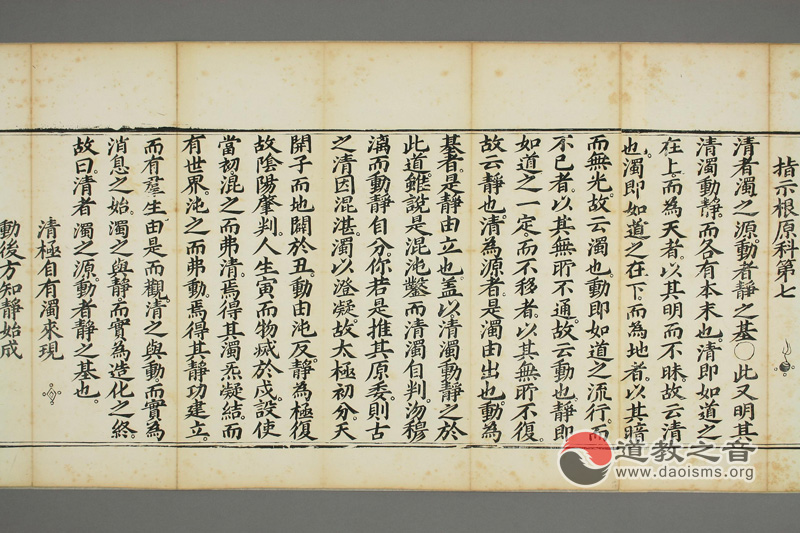 指示根原科第七
清者濁之源。動者静之基。〇此又明其
清濁動静。而各有本末也。清即如道之
在上。而為天者。以其明而不昧。故云清
也。濁即如道之在下。而為地者。以其暗
而無光。故云濁也。動即如道之流行。而
不已者。以其無所不通。故云動也。静即
如道之一定而不移者。以其無所不復。
故云静也。清為源者。是濁由出也。動為
基者。是静由立也。盖以清濁動静之於
此道。雖說是混沌鑿而清濁自判。沕穆
漓而動静自分。你若是推其原委。則古
之清因混湛。濁以澄凝。故太極初分。天
開子而地闢於丑。動由沌反。静為極復
故陰陽肇判。人生寅而物烕於戌。設使
當初。混之而弗清。焉得其濁炁凝結。而
有世界。沌之而弗動。焉得其静功建立。
而有羣生。由是而觀。清之與動。而實為
消息之始。濁之與静。而實為造化之終。
故曰。清者濁之源。動者静之基也。
清極自有濁來現
動後方知静始成
道教之音
www.daoisms.org